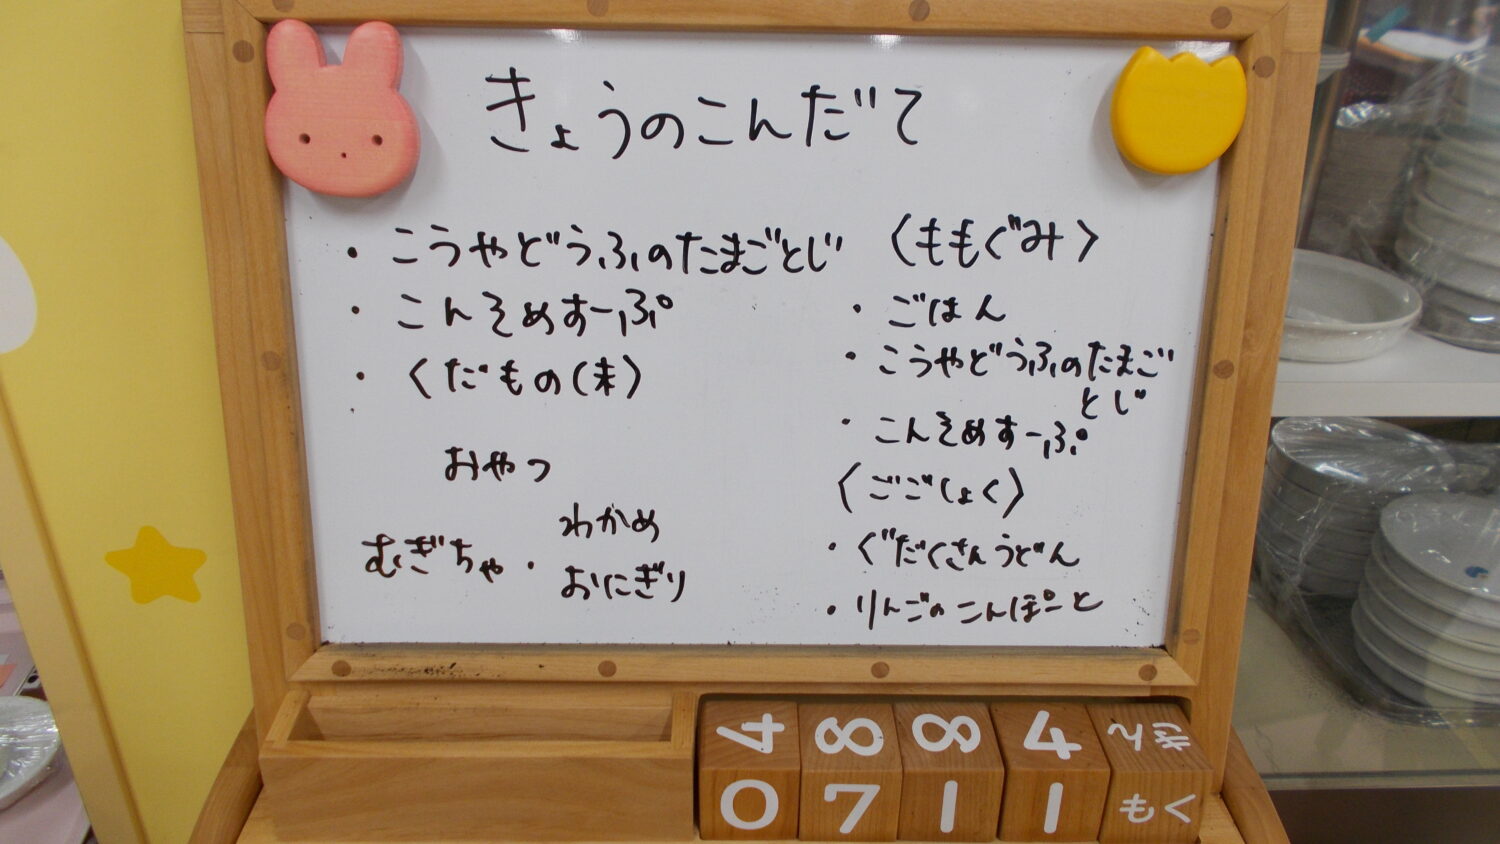 きょうのこんだて
・こうやどうふのたまごとじ
・こんそめすーぷ
・くだもの(未)
おやつ
むぎちゃ・わかめ
おにぎり
〈ももぐみ〉
・ごはん
・こうやどうふのたまご
とじ
・こんそめすーぷ
〈ごごしょく〉
・ぐだくさんうどん
・りんごのこんぽーと
4 8 8 4
0 7 1 1 もく